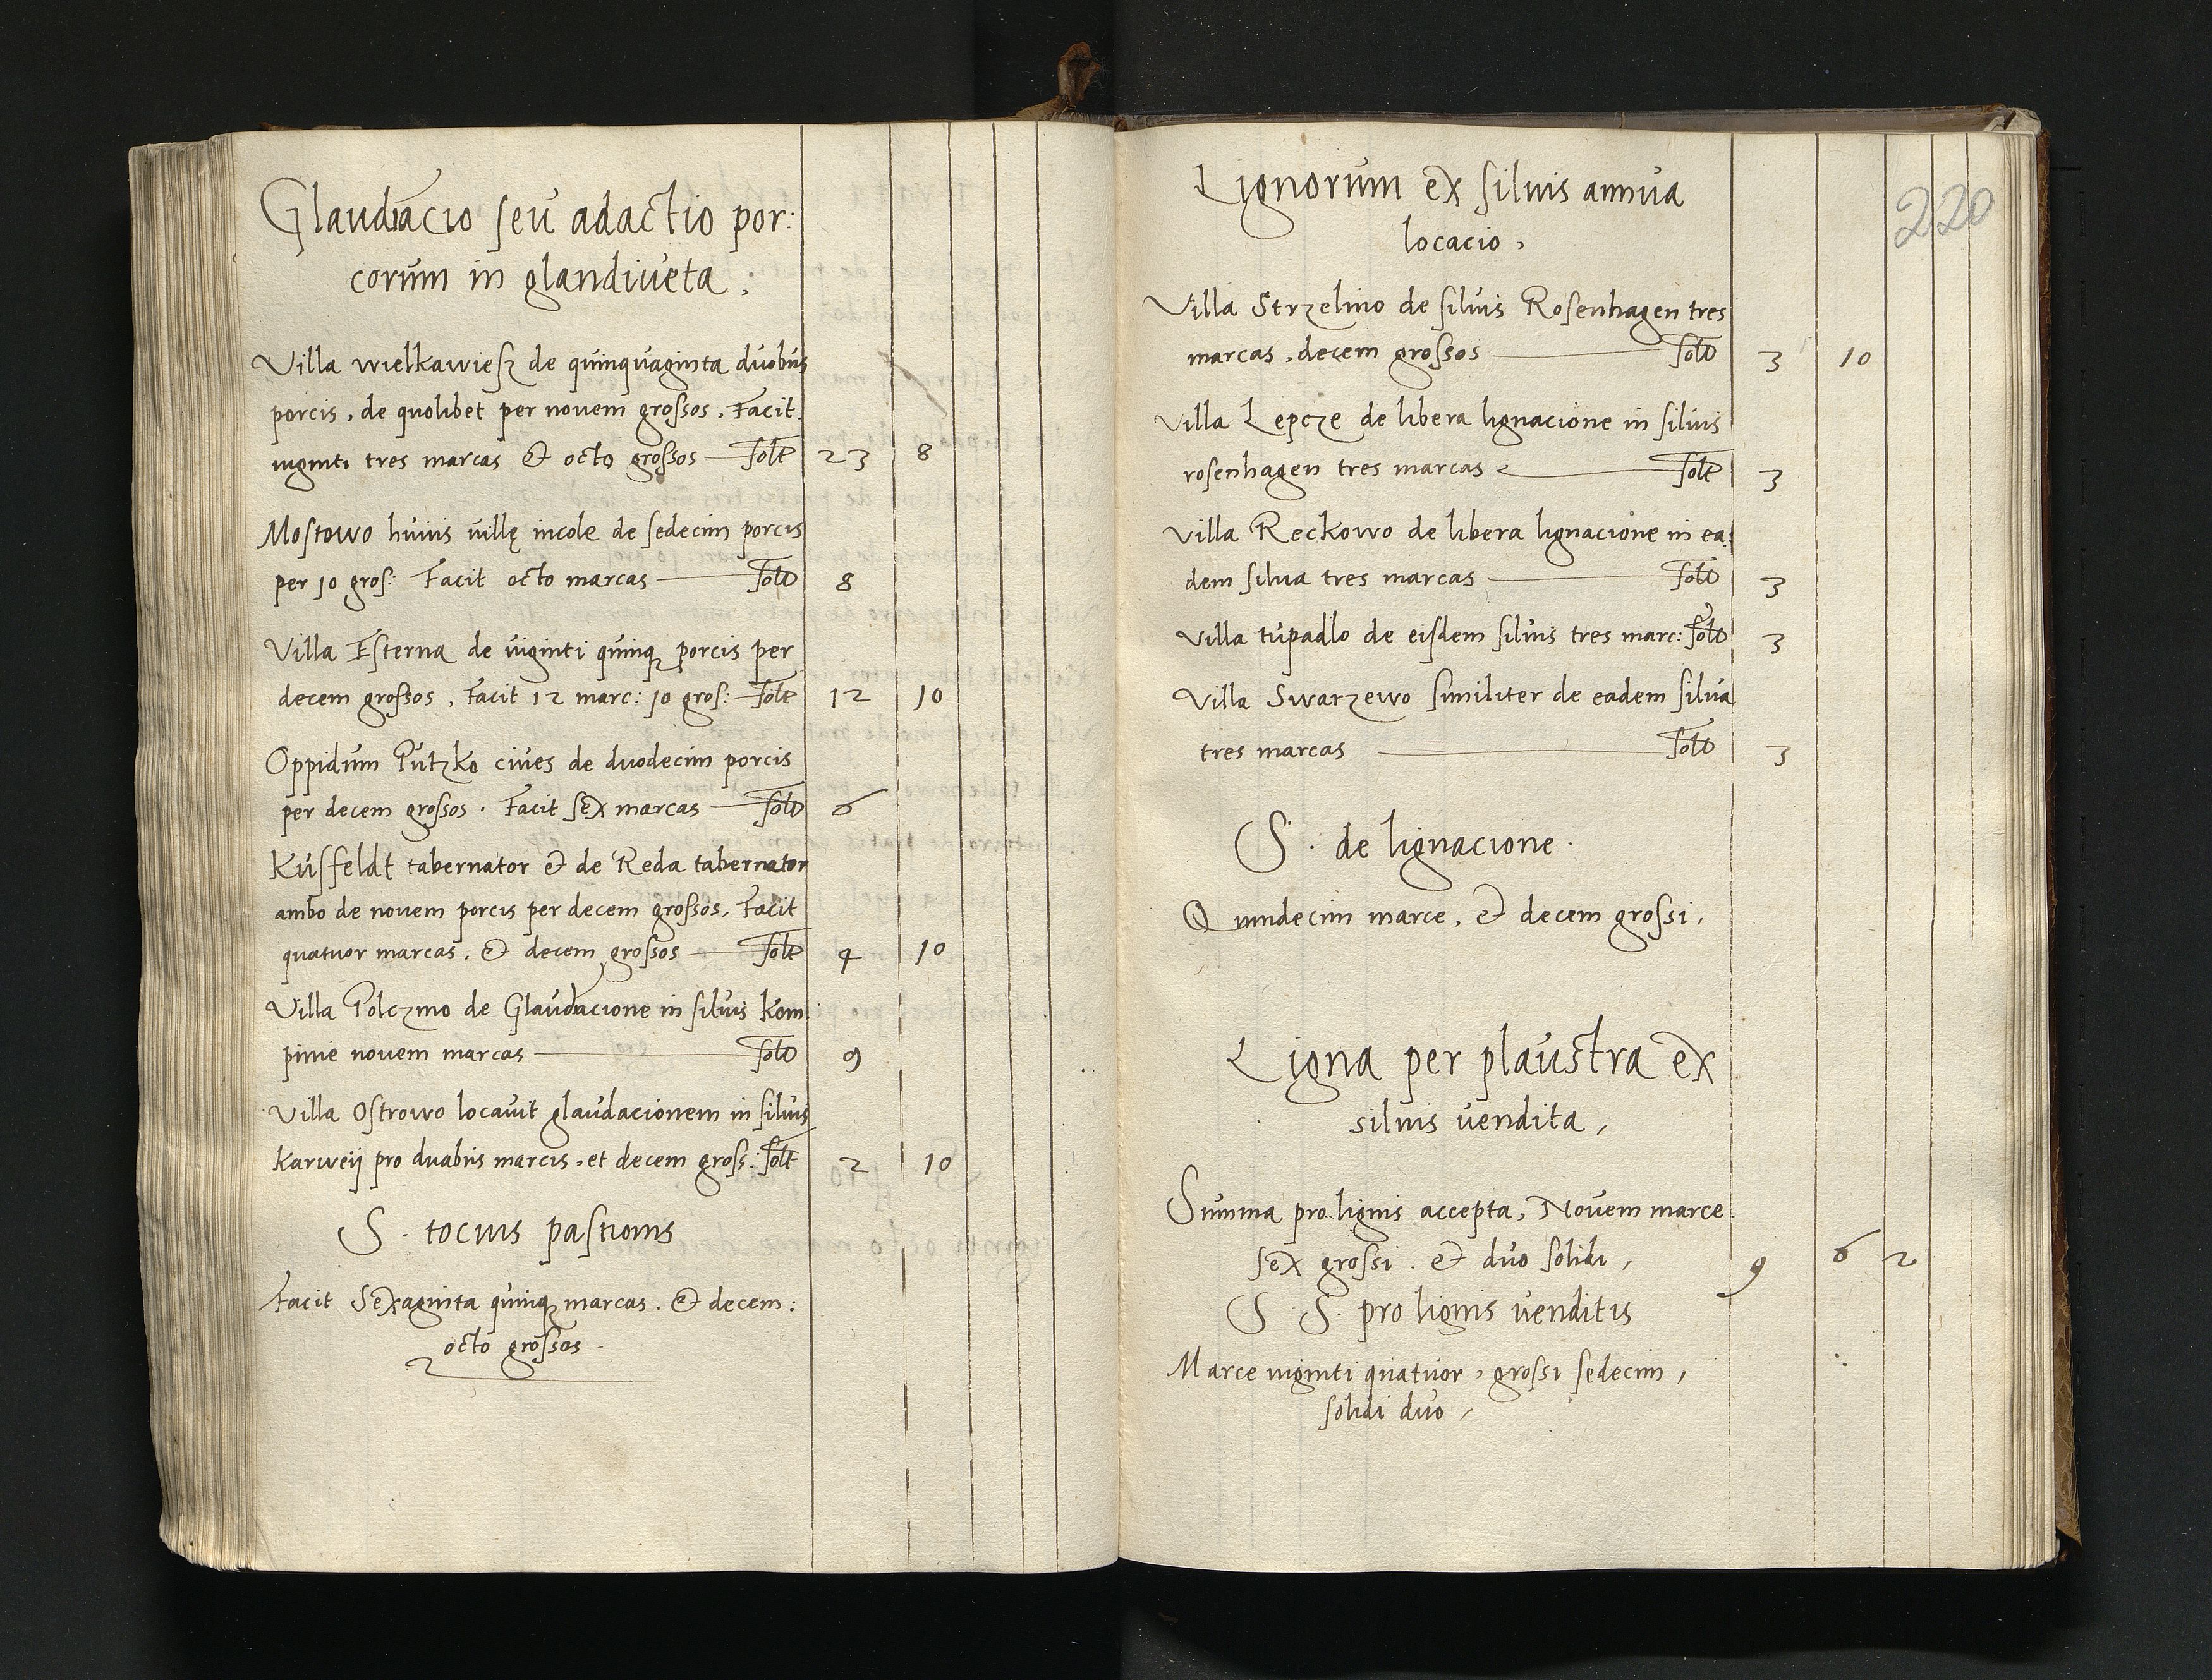 Glaudacio seu adactio por:
corum in glandiueta.
Villa wielkawiesz de quinquaginta duobus
porcis, de quolibet per nouem grossos. Facit
uiginti tres marcas et octo grossos — solt 23 8
Mostowo huius villę incole de sedecim porcis
per 10 gros: Facit octo marcas — solt 8
Villa Esterna de uiginti quinq porcis per
decem grossos, Facit 12 marc: 10 gros: solt 12 10
Oppidum Putzko ciues de duodecim porcis
per decem grossos. Facit sex marcas — solt 6
Kusfeldt tabernator et de Reda tabernator
ambo de nouem porcis per decem grossos, Facit
quatuor marcas, et decem grossos — solt 4 10
Villa Polczino de Glaudacione in siluis Kom
pinie nouem marcas — solt 9
Villa Ostrowo locauit glaudacionem in siluis
Karweij pro duabus marcis, et decem gross: solt 2 10
S. tocius pastionis
Facit Sexaginta quinq marcas. et decem:
octo grossos
220
Lignorum ex siluis annua
locacio,
Villa Strzelino de siluis Rosenhagen tres
marcas, decem grossos — solt 3 10
Villa Lepcze de libera lignacione in siluis
rosenhagen tres marcas — solt 3
Villa Reckowo de libera lignacione in ea:
dem silua tres marcas — solt 3
Villa tupadlo de eisdem siluis tres marc: solt 3
Villa Swarzewo similiter de eadem silua
tres marcas — solt 3
S. de lignacione.
Quindecim marce, et decem grossi,
Ligna per plaustra ex
siluis uendita,
Summa pro lignis accepta, Nouem marce
sex grossi. et duo solidi, 9 6 2
S. S. pro lignis uenditis
Marce uiginti quatuor, grossi sedecim,
solidi duo,